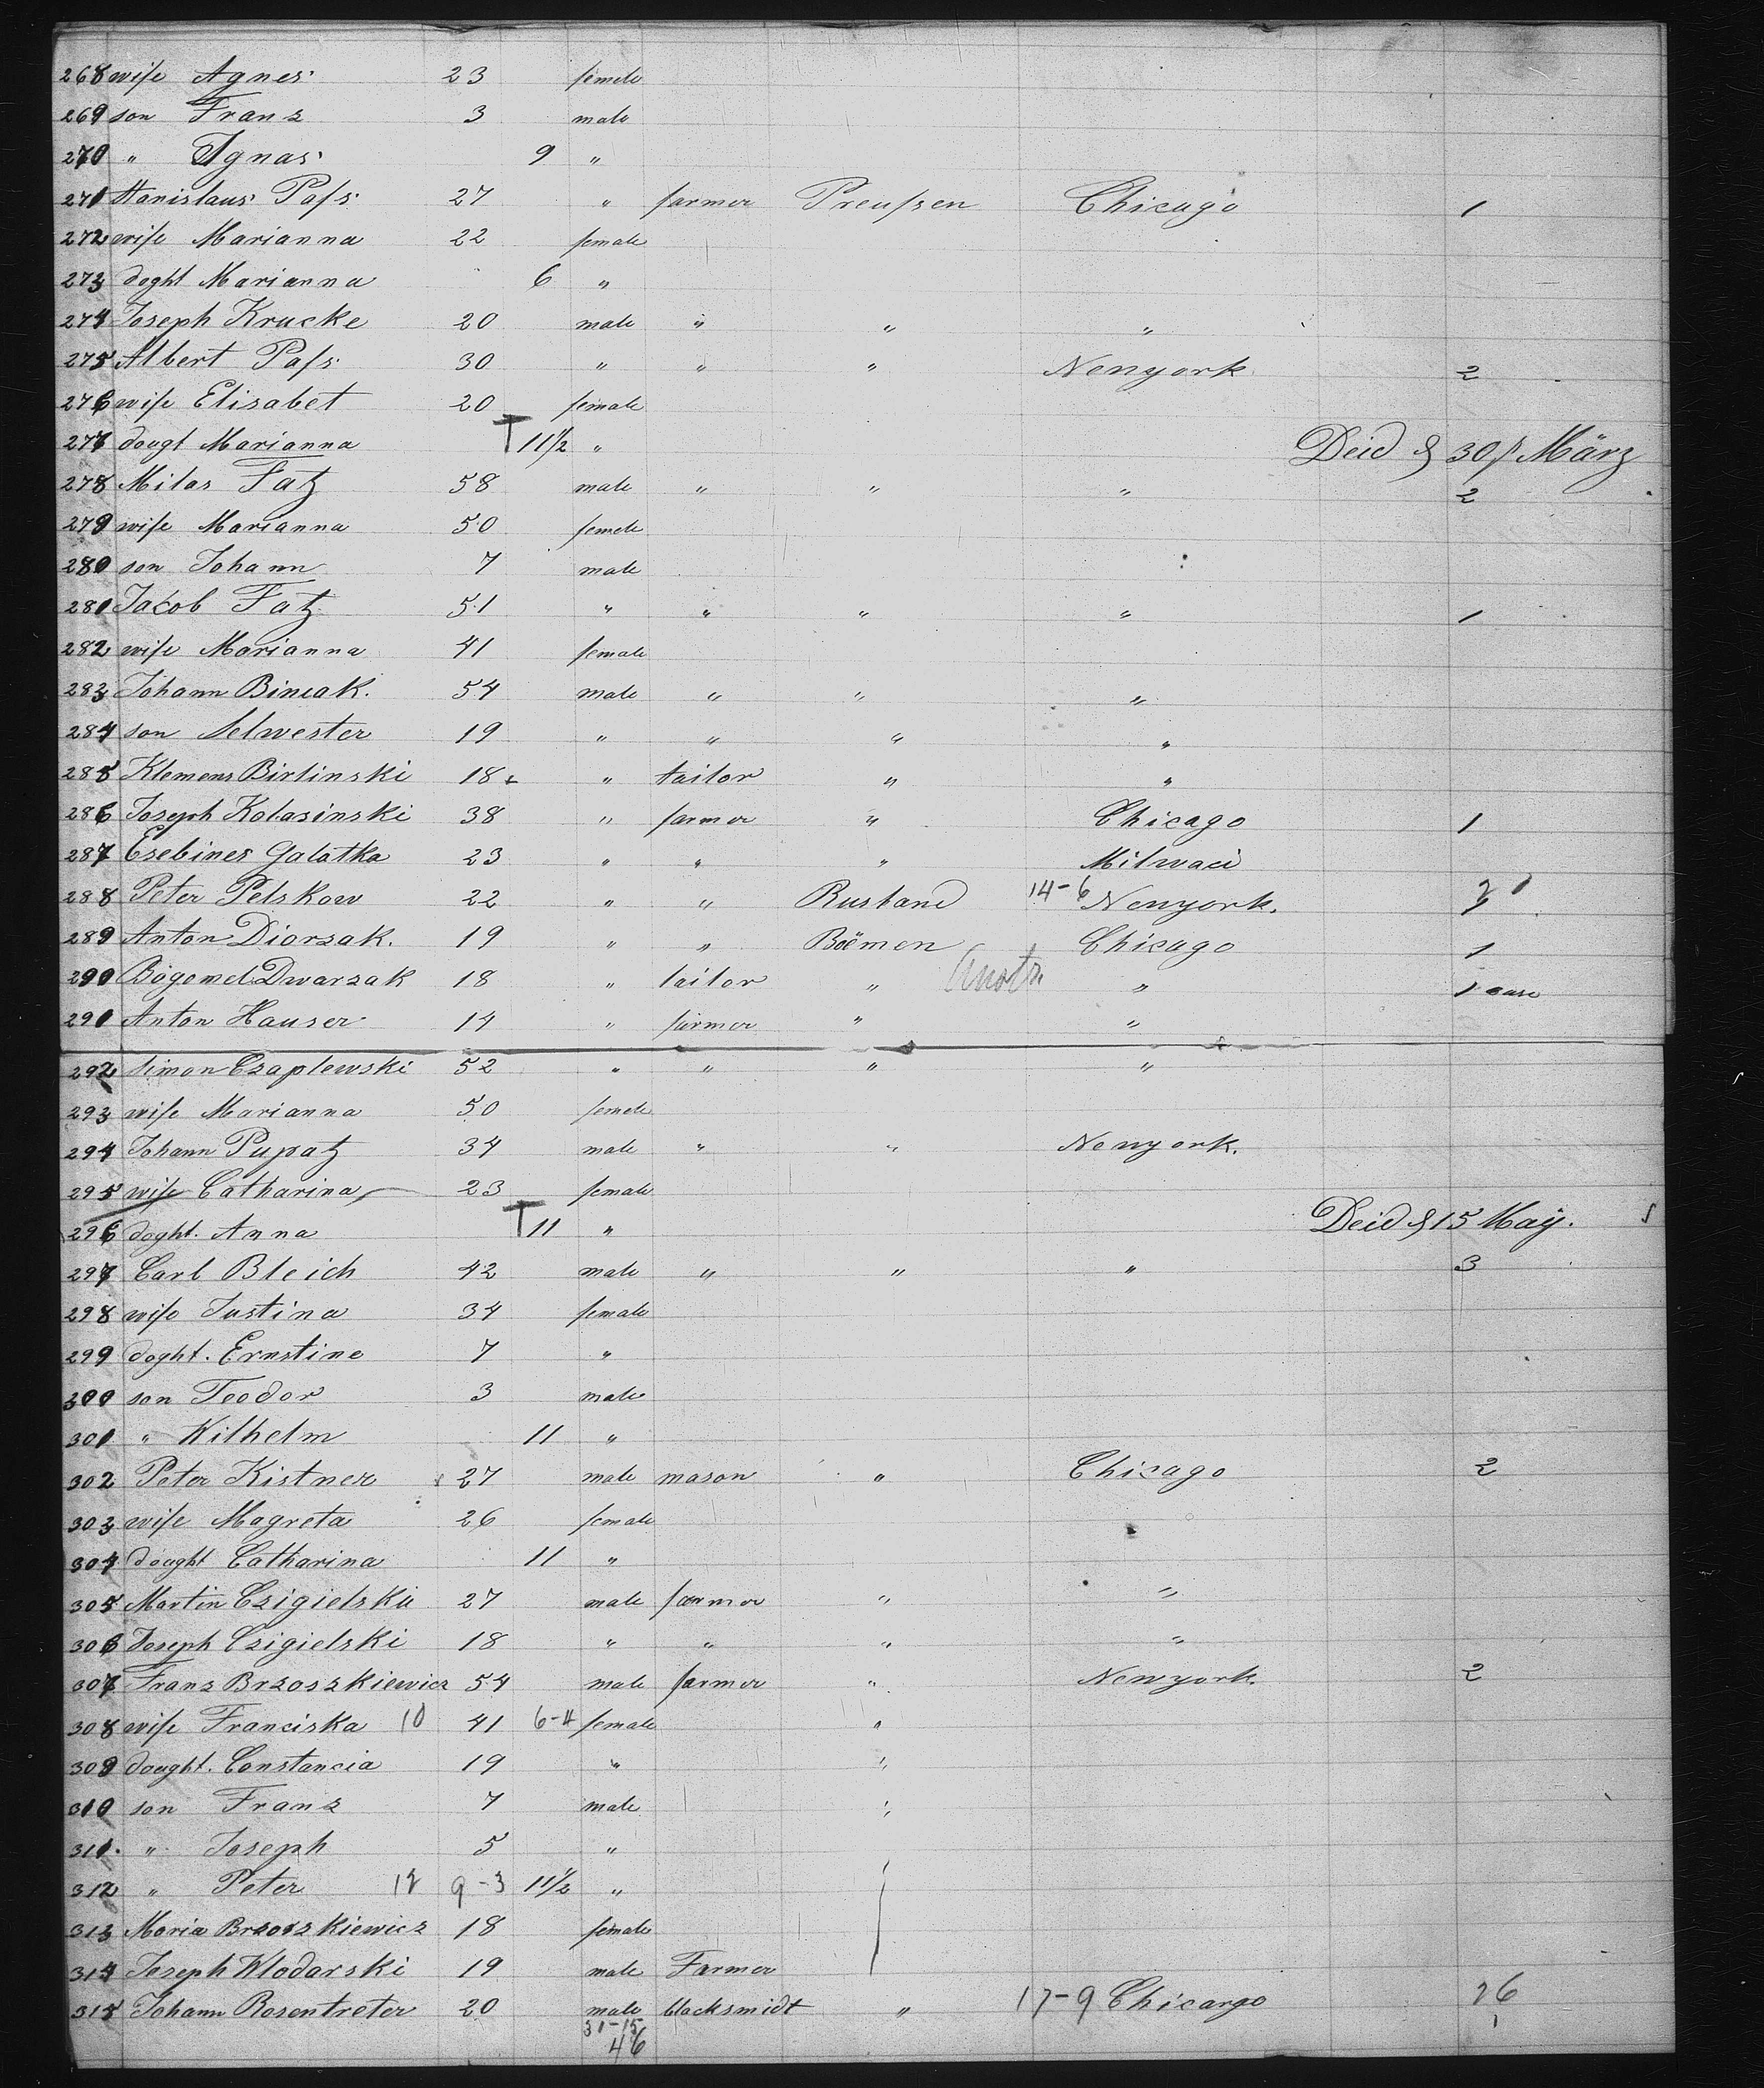 268 wife Agnes 23 female
269 son Franz 3 male
270 " Ignas 9 "
271 Stanislaus Paſs 27 " farmer Preuſsen Chicago 1
272 wife Marianna 22 female
273 doght Marianna 6 "
274 Joseph Krucke 20 male " " "
275 Albert Paſs 30 " " " Nenyork 2
276 wife Elisabet 20 female
277 dougt Marianna T 11 1/2 " Deid d 30/ März
278 Milas Fatz 58 male " " " 2
279 wife Marianna 50 female
280 son Johann 7 male
281 Jacob Fatz 51 " " " " 1
282 wife Marianna 41 female
283 Johann Biniak. 54 male " " "
284 son Selwester 19 " " " "
285 Klemens Birlinski 18 " tailor " "
286 Joseph Kolasinski 38 " farmer " Chicago 1
287 Esebines Galatka 23 " " " Milwaci
288 Peter Pelskow 22 " " Rusland 14-6 Nenyork.
289 Anton Diorsak. 19 " " Böemen Chicago 1
290 Bogomel Dwarzak 18 " tailor " Austr. " 1 case
291 Anton Hauser 14 " farmer " "
292 Simon Czaplewski 52 " " " "
293 wife Marianna 50 female
294 Johann Pupatz 34 male " " Nenyork.
295 wife Catharina 23 female
296 doght. Anna T 11 " Deid d 15 Maÿ.
297 Carl Bleich 42 male " " " 3
298 wife Justina 34 female
299 doght. Ernstine 7 "
300 son Teodor 3 male
301 " Wilhelm 11 "
302 Peter Kistner 27 male mason " Chicago 2
303 wife Magreta 26 female
304 dought Catharina 11 "
305 Martin Czigielski 27 male farmer " "
306 Joseph Czigielski 18 " " " "
307 Franz Brzoszkiewicz 54 male farmer " Newyork. 2
308 wife Franciska 10 41 6-4 female "
309 dought. Constancia 19 " "
310 son Franz 7 male "
311. " Joseph 5 "
312 " Peter 12 9-3 11 1/2 "
313 Maria Brzoszkiewicz 18 female
314 Joseph Klodarski 19 male Farmer
315 Johann Rosentreter 20 male blacksmidt " 17-9 Chicargo 26
31-15 1
46